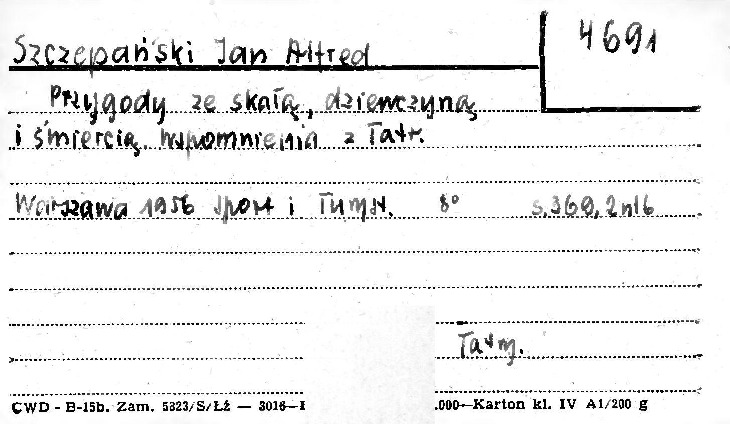 4691
Szczepański Jan Alfred
Przygody ze skałą, dziewczyną
i śmiercią. Wspomnienia z Tatr.
Warszawa 1956 Sport i Turyst. 8° s. 369, 2 nlb
Tatry.
CWD - B-15b. Zam. 5323/S/Łź — 3016— .000—Karton kl. IV A1/200 g